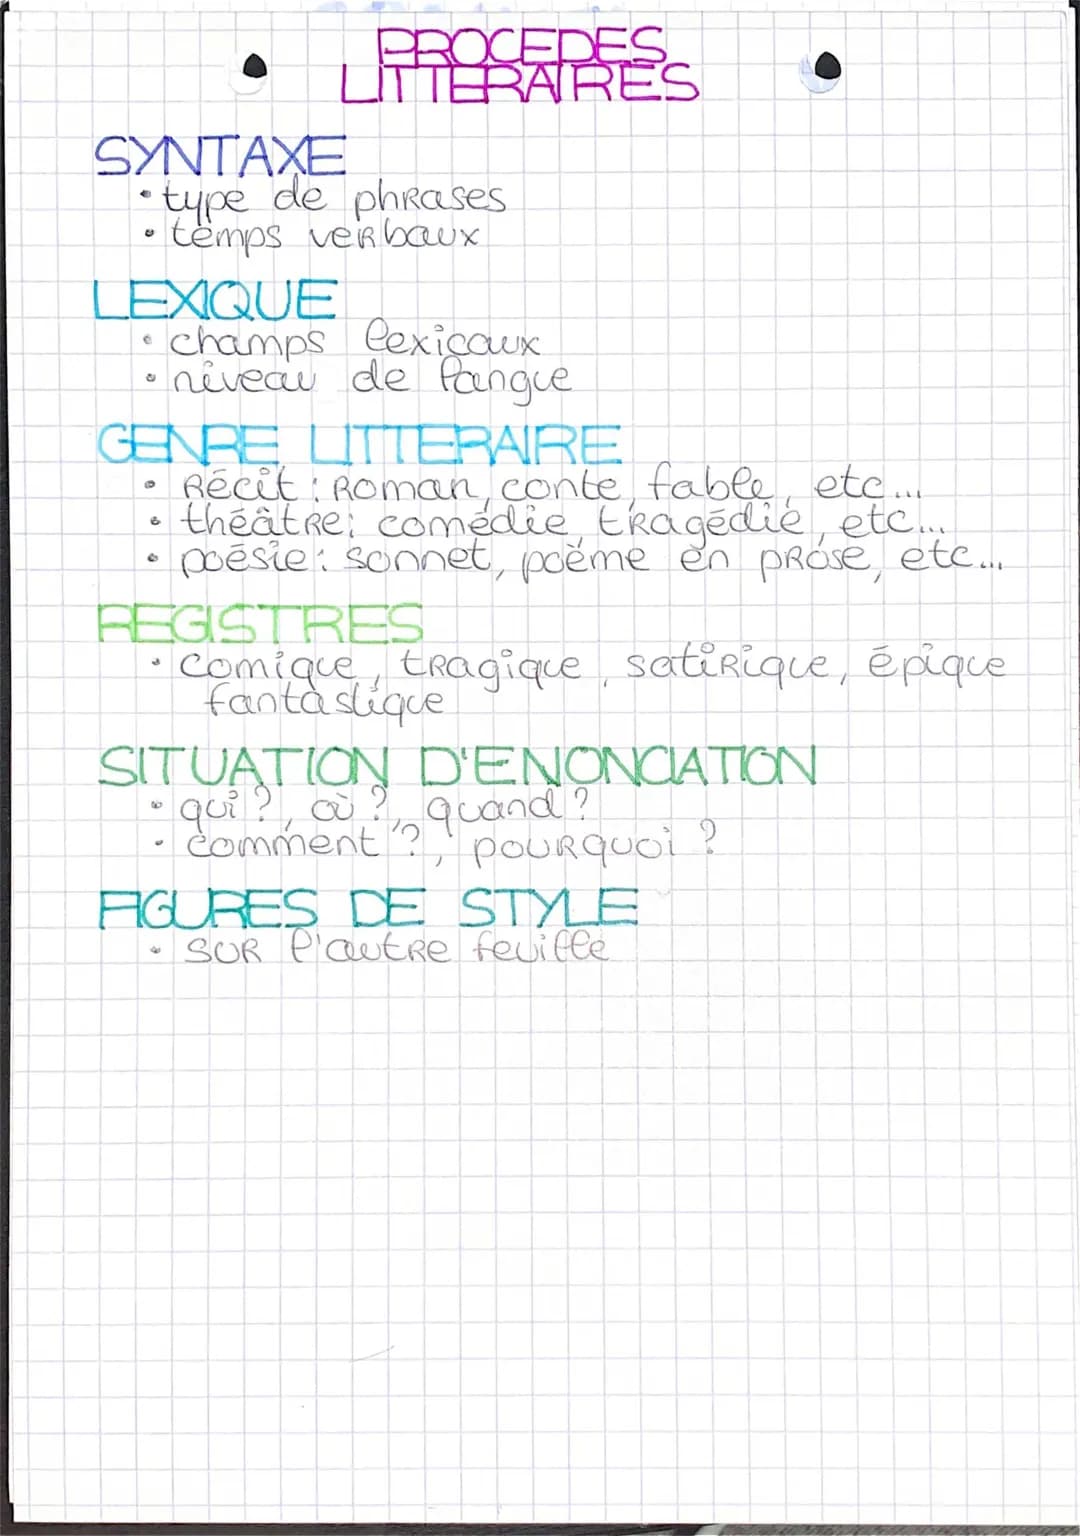 PROCEDES
LITTERAIRES
SYNTAXE
• type de phrases
• temps verbaux
LEXIQUE
• champs lexicaux
• niveau de langue
GENRE LITTERAIRE
• Récit : Roman, conte, fable, etc...
• théâtre : comédie, tragédie, etc...
• poésie : sonnet, poème en prose, etc...
REGISTRES
• comique, tragique, satirique, épique
fantastique
SITUATION D'ENONCIATION
• qui ?, où ?, quand ?
• comment ?, pourquoi ?
FIGURES DE STYLE
• sur l'autre feuille